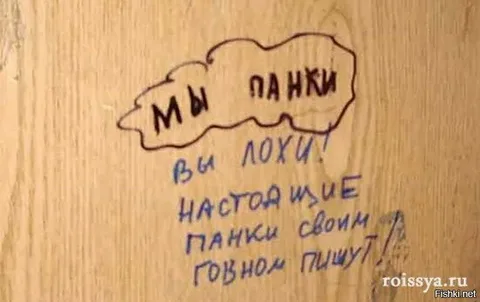 МЫ ПАНКИ
ВЫ ЛОХИ!
НАСТОЯЩИЕ
ПАНКИ СВОИМ
ГОВНОМ ПИШУТ!
roissya.ru
Fishki.net